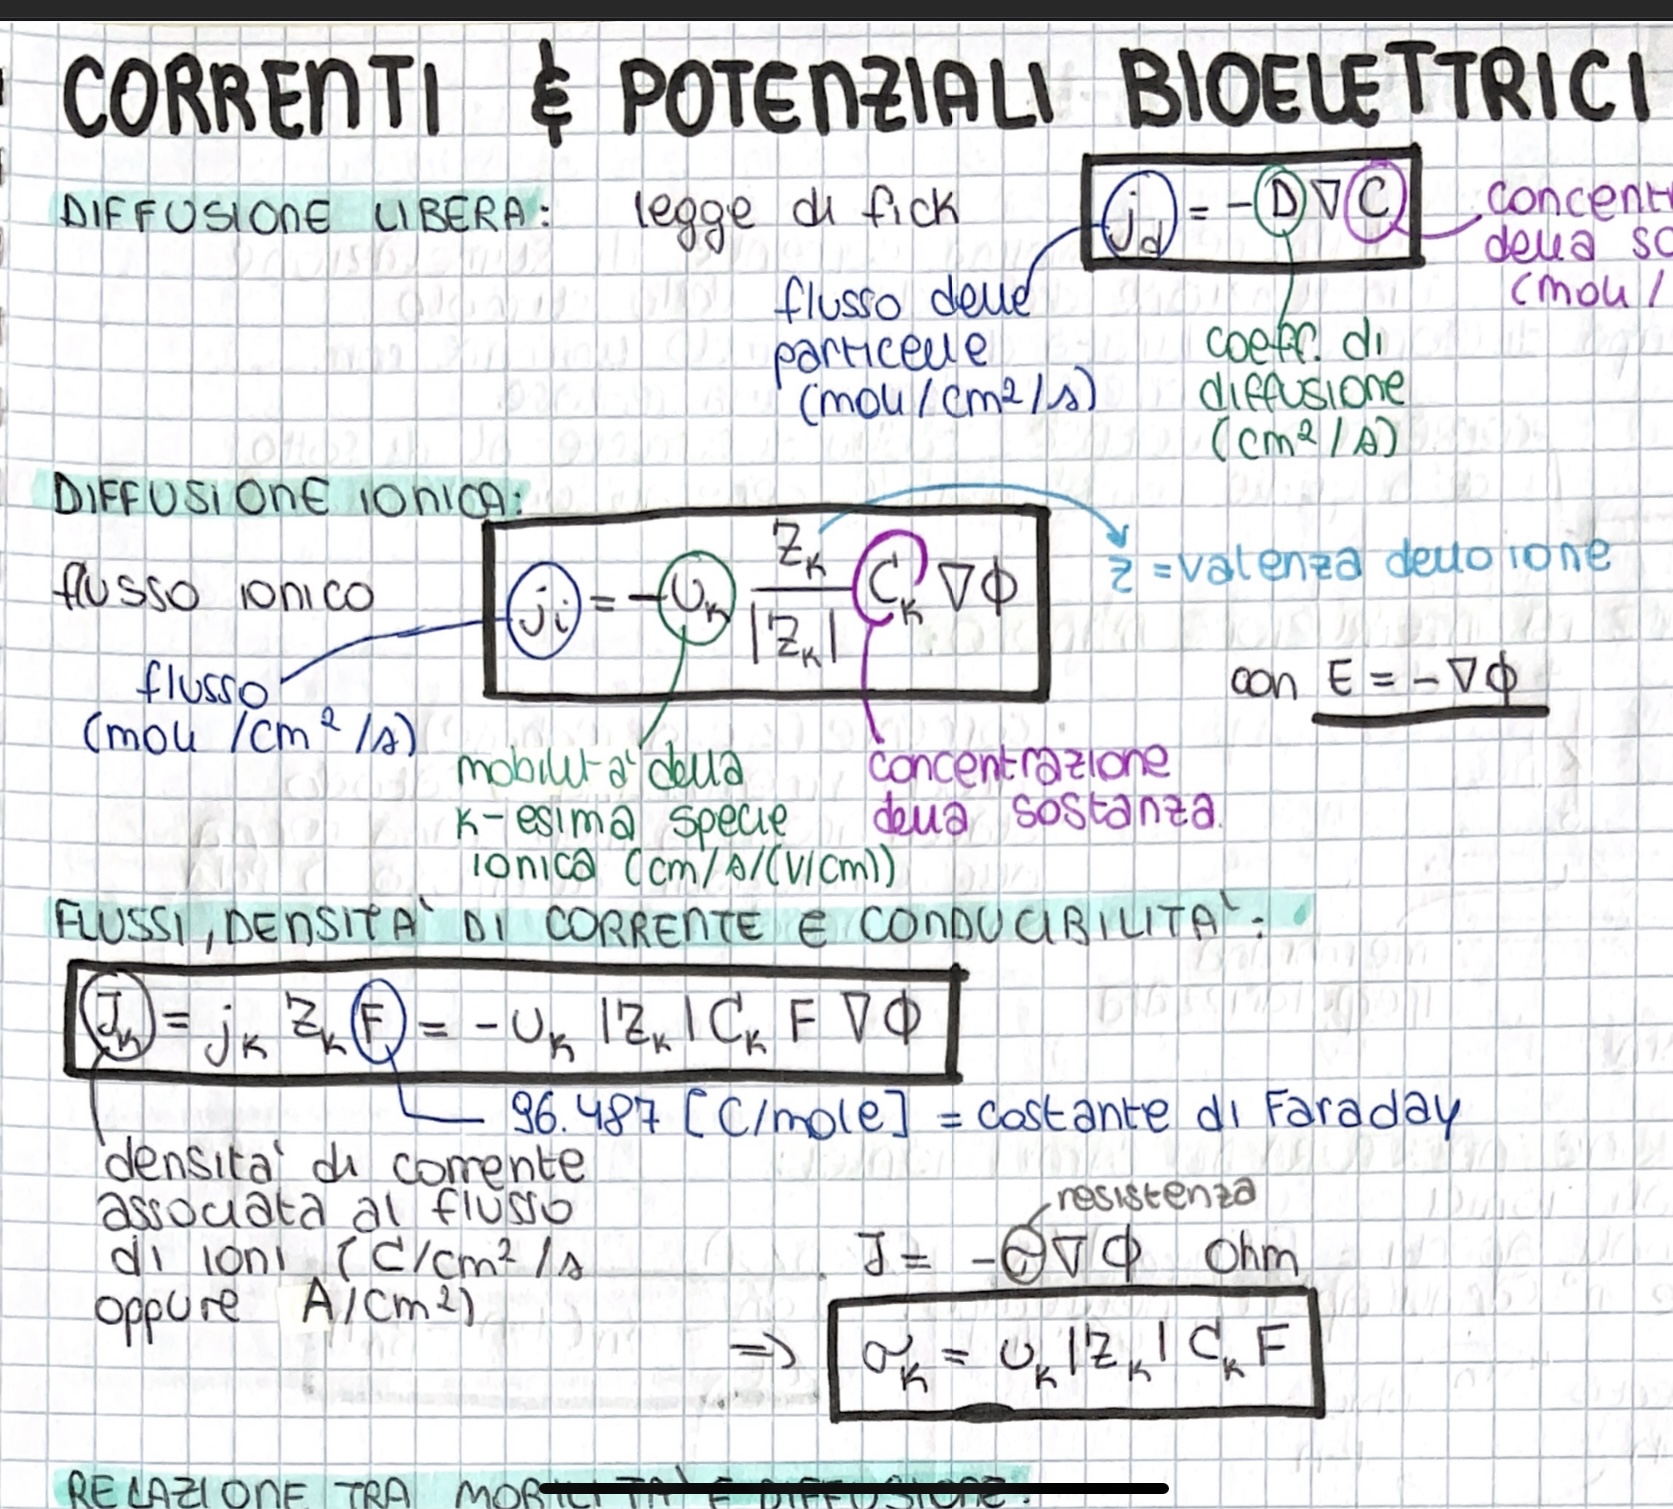 CORRENTI & POTENZIALI BIOELETTRICI
DIFFUSIONE LIBERA: legge di fick
j_d = -D∇C
concent
della so
(moli /
flusso delle
particelle
(moli/cm²/s)
coeff. di
diffusione
(cm²/s)
DIFFUSIONE IONICA:
flusso ionico
j_i = -U_K Z_K/|Z_K| C_K ∇Φ
z = valenza dello ione
con E = -∇Φ
flusso
(moli/cm²/s)
mobilità della
K-esima specie
ionica (cm/s/(V/cm))
concentrazione
della sostanza
FLUSSI, DENSITA' DI CORRENTE E CONDUCIBILITA':
J_K = j_K Z_K F = -U_K |Z_K| C_K F ∇Φ
96.487 [C/mole] = costante di Faraday
densità di corrente
associata al flusso
di ioni (C/cm²/s
oppure A/cm²)
resistenza
J = -σ∇Φ Ohm
=> σ_K = U_K |Z_K| C_K F
RELAZIONE TRA MOBILITA' E DIFFUSIONE: